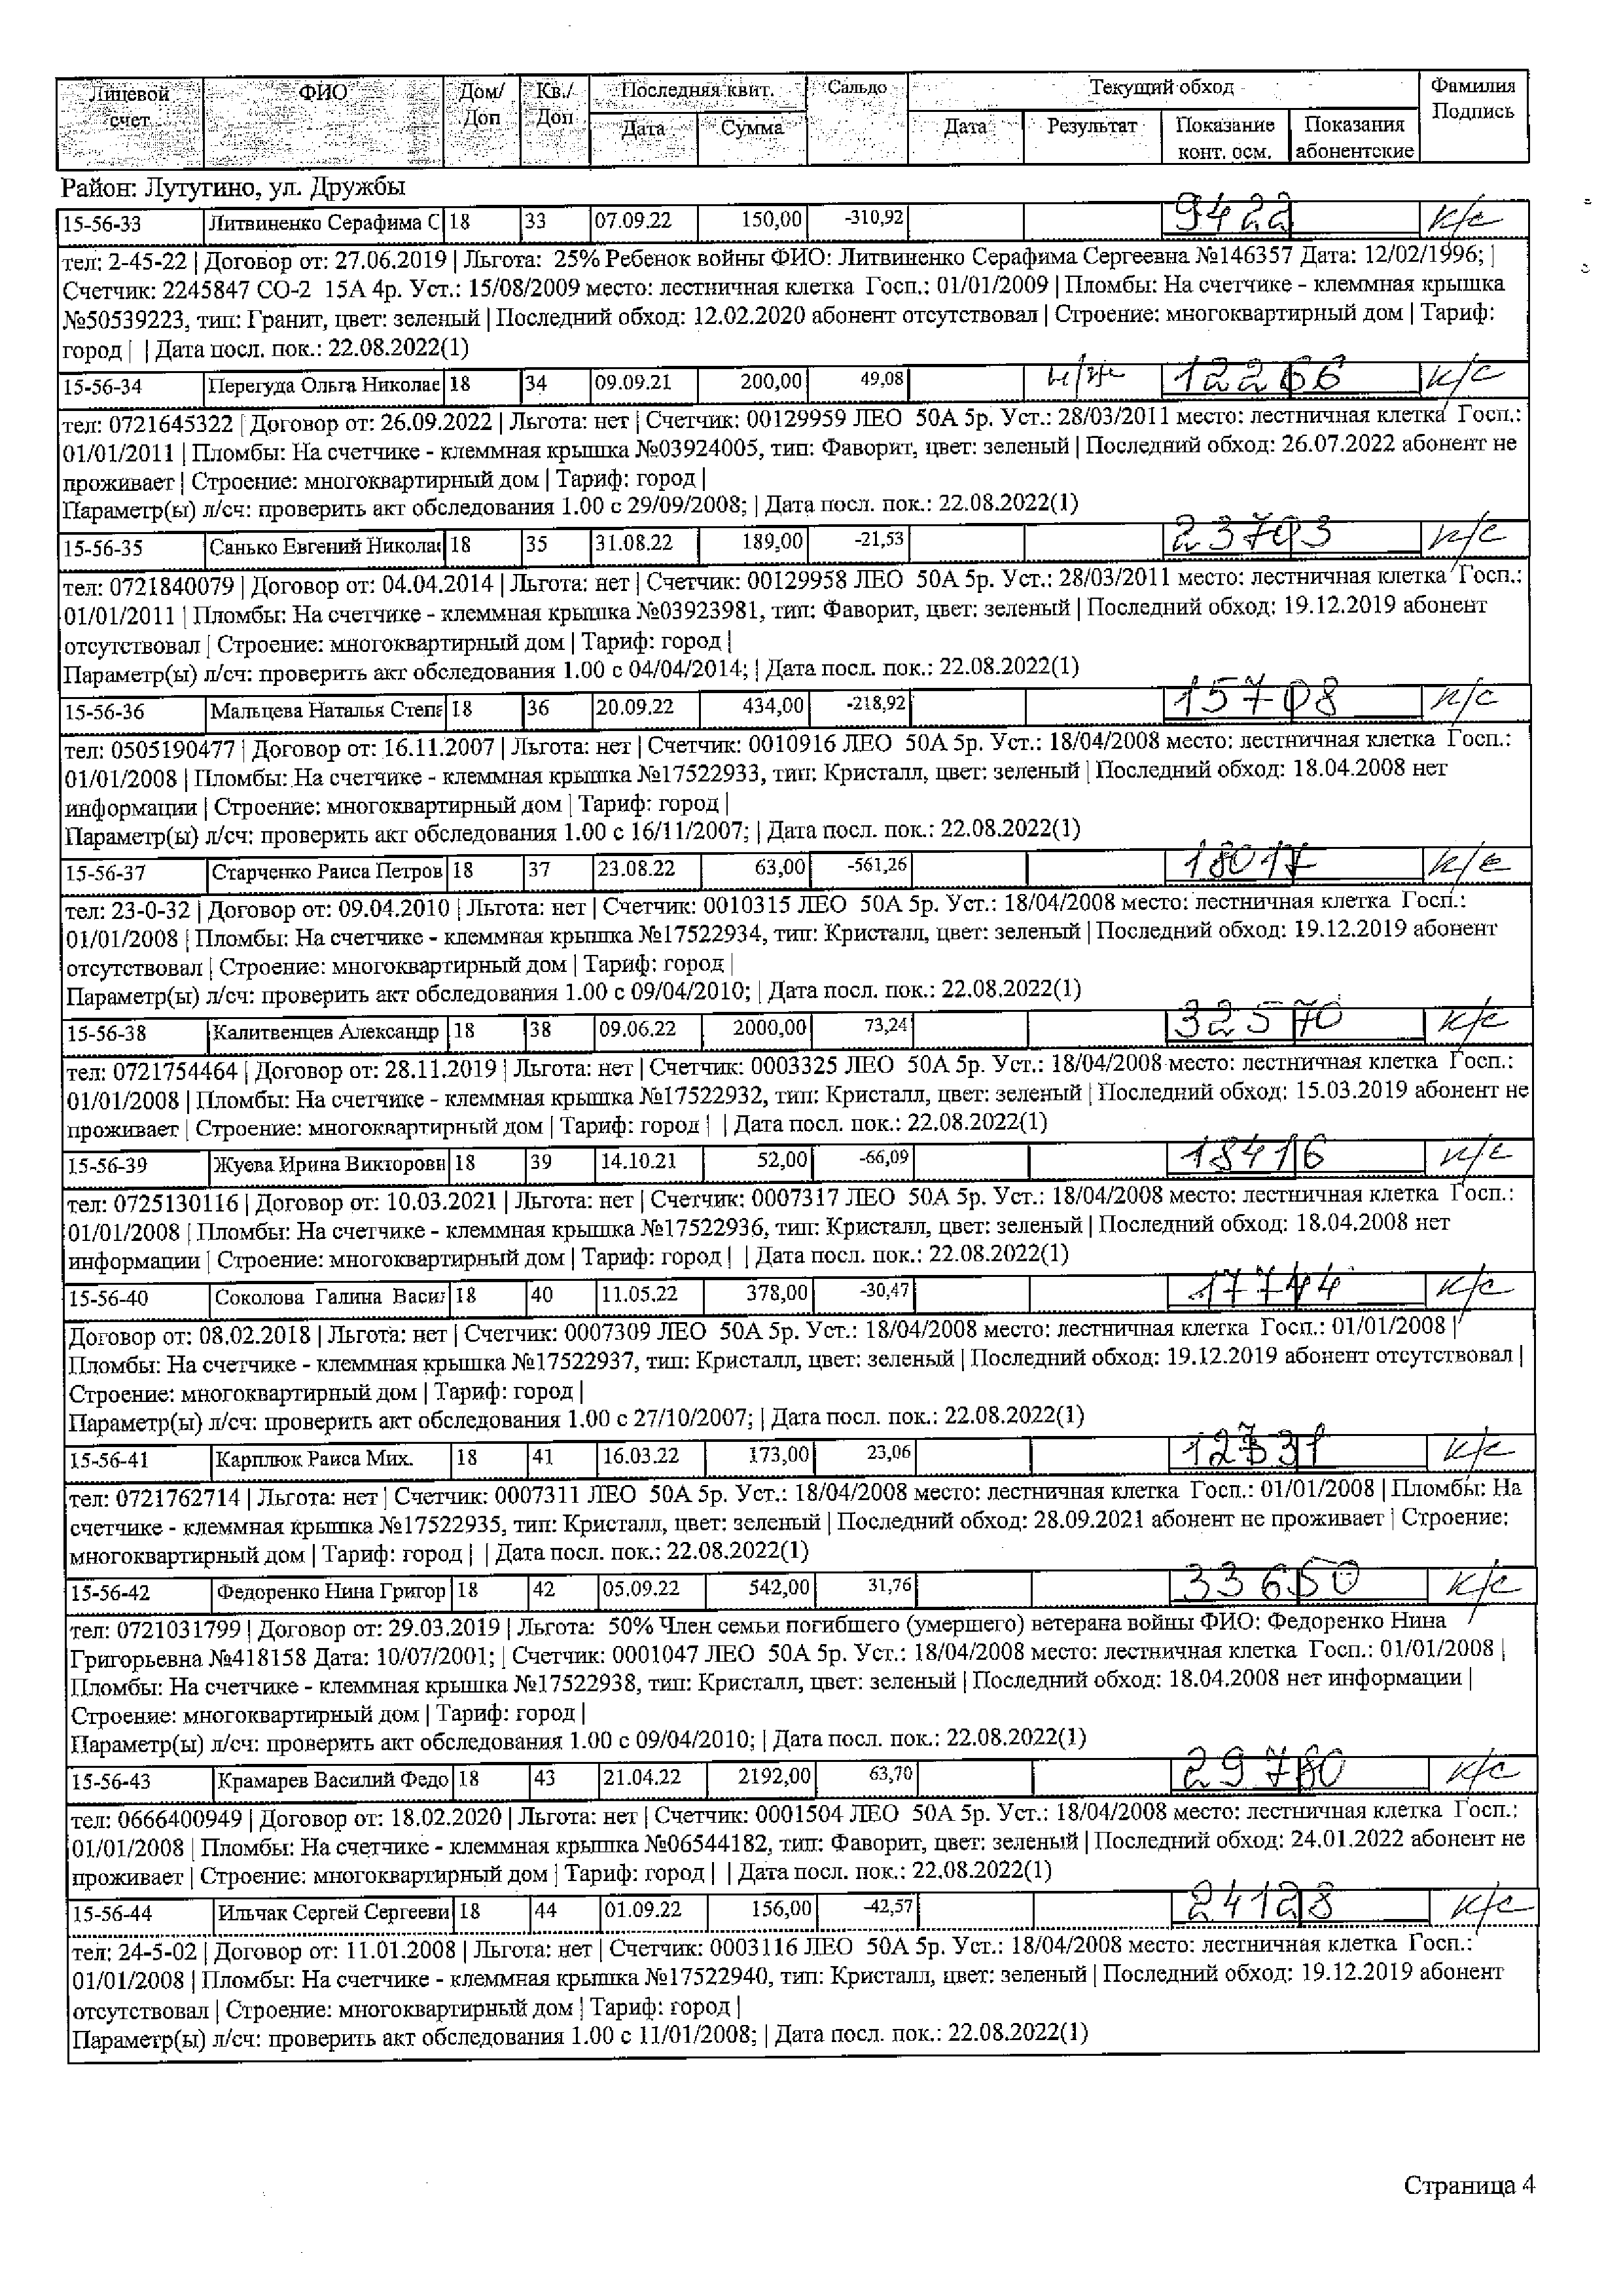 Лицевой счет ФИО Дом/ Доп Кв./ Доп Последняя квит. Сальдо Текущий обход Фамилия Подпись
Дата Сумма Дата Результат Показание конт. осм. Показания абонентские
Район: Лутугино, ул. Дружбы
15-56-33 Литвиненко Серафима С 18 33 07.09.22 150,00 -310,92 9422 к/с
тел: 2-45-22 | Договор от: 27.06.2019 | Льгота: 25% Ребенок войны ФИО: Литвиненко Серафима Сергеевна №146357 Дата: 12/02/1996; |
Счетчик: 2245847 СО-2 15А 4р. Уст.: 15/08/2009 место: лестничная клетка Госп.: 01/01/2009 | Пломбы: На счетчике - клеммная крышка
№50539223, тип: Гранит, цвет: зеленый | Последний обход: 12.02.2020 абонент отсутствовал | Строение: многоквартирный дом | Тариф:
город | | Дата посл. пок.: 22.08.2022(1)
15-56-34 Перегуда Ольга Николае 18 34 09.09.21 200,00 49,08 н/ж 12266 к/с
тел: 0721645322 | Договор от: 26.09.2022 | Льгота: нет | Счетчик: 00129959 ЛЕО 50А 5р. Уст.: 28/03/2011 место: лестничная клетка Госп.:
01/01/2011 | Пломбы: На счетчике - клеммная крышка №03924005, тип: Фаворит, цвет: зеленый | Последний обход: 26.07.2022 абонент не
проживает | Строение: многоквартирный дом | Тариф: город |
Параметр(ы) л/сч: проверить акт обследования 1.00 с 29/09/2008; | Дата посл. пок.: 22.08.2022(1)
15-56-35 Санько Евгений Никола 18 35 31.08.22 189,00 -21,53 23703 к/с
тел: 0721840079 | Договор от: 04.04.2014 | Льгота: нет | Счетчик: 00129958 ЛЕО 50А 5р. Уст.: 28/03/2011 место: лестничная клетка Госп.:
01/01/2011 | Пломбы: На счетчике - клеммная крышка №03923981, тип: Фаворит, цвет: зеленый | Последний обход: 19.12.2019 абонент
отсутствовал | Строение: многоквартирный дом | Тариф: город |
Параметр(ы) л/сч: проверить акт обследования 1.00 с 04/04/2014; | Дата посл. пок.: 22.08.2022(1)
15-56-36 Мальцева Наталья Степа 18 36 20.09.22 434,00 -218,92 15708 к/с
тел: 0505190477 | Договор от: 16.11.2007 | Льгота: нет | Счетчик: 0010916 ЛЕО 50А 5р. Уст.: 18/04/2008 место: лестничная клетка Госп.:
01/01/2008 | Пломбы: На счетчике - клеммная крышка №17522933, тип: Кристалл, цвет: зеленый | Последний обход: 18.04.2008 нет
информации | Строение: многоквартирный дом | Тариф: город |
Параметр(ы) л/сч: проверить акт обследования 1.00 с 16/11/2007; | Дата посл. пок.: 22.08.2022(1)
15-56-37 Старченко Раиса Петров 18 37 23.08.22 63,00 -561,26 18017 к/с
тел: 23-0-32 | Договор от: 09.04.2010 | Льгота: нет | Счетчик: 0010315 ЛЕО 50А 5р. Уст.: 18/04/2008 место: лестничная клетка Госп.:
01/01/2008 | Пломбы: На счетчике - клеммная крышка №17522934, тип: Кристалл, цвет: зеленый | Последний обход: 19.12.2019 абонент
отсутствовал | Строение: многоквартирный дом | Тариф: город |
Параметр(ы) л/сч: проверить акт обследования 1.00 с 09/04/2010; | Дата посл. пок.: 22.08.2022(1)
15-56-38 Калитвенцев Александр 18 38 09.06.22 2000,00 73,24 32570 к/с
тел: 0721754464 | Договор от: 28.11.2019 | Льгота: нет | Счетчик: 0003325 ЛЕО 50А 5р. Уст.: 18/04/2008 место: лестничная клетка Госп.:
01/01/2008 | Пломбы: На счетчике - клеммная крышка №17522932, тип: Кристалл, цвет: зеленый | Последний обход: 15.03.2019 абонент не
проживает | Строение: многоквартирный дом | Тариф: город | | Дата посл. пок.: 22.08.2022(1)
15-56-39 Жуева Ирина Викторовн 18 39 14.10.21 52,00 -66,09 18416 к/с
тел: 0725130116 | Договор от: 10.03.2021 | Льгота: нет | Счетчик: 0007317 ЛЕО 50А 5р. Уст.: 18/04/2008 место: лестничная клетка Госп.:
01/01/2008 | Пломбы: На счетчике - клеммная крышка №17522936, тип: Кристалл, цвет: зеленый | Последний обход: 18.04.2008 нет
информации | Строение: многоквартирный дом | Тариф: город | | Дата посл. пок.: 22.08.2022(1)
15-56-40 Соколова Галина Васил 18 40 11.05.22 378,00 -30,47 17744 к/с
Договор от: 08.02.2018 | Льгота: нет | Счетчик: 0007309 ЛЕО 50А 5р. Уст.: 18/04/2008 место: лестничная клетка Госп.: 01/01/2008 |
Пломбы: На счетчике - клеммная крышка №17522937, тип: Кристалл, цвет: зеленый | Последний обход: 19.12.2019 абонент отсутствовал |
Строение: многоквартирный дом | Тариф: город |
Параметр(ы) л/сч: проверить акт обследования 1.00 с 27/10/2007; | Дата посл. пок.: 22.08.2022(1)
15-56-41 Карплюк Раиса Мих. 18 41 16.03.22 173,00 23,06 к/с
тел: 0721762714 | Льгота: нет | Счетчик: 0007311 ЛЕО 50А 5р. Уст.: 18/04/2008 место: лестничная клетка Госп.: 01/01/2008 | Пломбы: На
счетчике - клеммная крышка №17522935, тип: Кристалл, цвет: зеленый | Последний обход: 28.09.2021 абонент не проживает | Строение:
многоквартирный дом | Тариф: город | | Дата посл. пок.: 22.08.2022(1)
15-56-42 Федоренко Нина Григор 18 42 05.09.22 542,00 31,76 33650 к/с
тел: 0721031799 | Договор от: 29.03.2019 | Льгота: 50% Член семьи погибшего (умершего) ветерана войны ФИО: Федоренко Нина
Григорьевна №418158 Дата: 10/07/2001; | Счетчик: 0001047 ЛЕО 50А 5р. Уст.: 18/04/2008 место: лестничная клетка Госп.: 01/01/2008 |
Пломбы: На счетчике - клеммная крышка №17522938, тип: Кристалл, цвет: зеленый | Последний обход: 18.04.2008 нет информации |
Строение: многоквартирный дом | Тариф: город |
Параметр(ы) л/сч: проверить акт обследования 1.00 с 09/04/2010; | Дата посл. пок.: 22.08.2022(1)
15-56-43 Крамарев Василий Федо 18 43 21.04.22 2192,00 63,70 29780 к/с
тел: 0666400949 | Договор от: 18.02.2020 | Льгота: нет | Счетчик: 0001504 ЛЕО 50А 5р. Уст.: 18/04/2008 место: лестничная клетка Госп.:
01/01/2008 | Пломбы: На счетчике - клеммная крышка №06544182, тип: Фаворит, цвет: зеленый | Последний обход: 24.01.2022 абонент не
проживает | Строение: многоквартирный дом | Тариф: город | | Дата посл. пок.: 22.08.2022(1)
15-56-44 Ильчак Сергей Сергееви 18 44 01.09.22 156,00 -42,57 24128 к/с
тел: 24-5-02 | Договор от: 11.01.2008 | Льгота: нет | Счетчик: 0003116 ЛЕО 50А 5р. Уст.: 18/04/2008 место: лестничная клетка Госп.:
01/01/2008 | Пломбы: На счетчике - клеммная крышка №17522940, тип: Кристалл, цвет: зеленый | Последний обход: 19.12.2019 абонент
отсутствовал | Строение: многоквартирный дом | Тариф: город |
Параметр(ы) л/сч: проверить акт обследования 1.00 с 11/01/2008; | Дата посл. пок.: 22.08.2022(1)
Страница 4